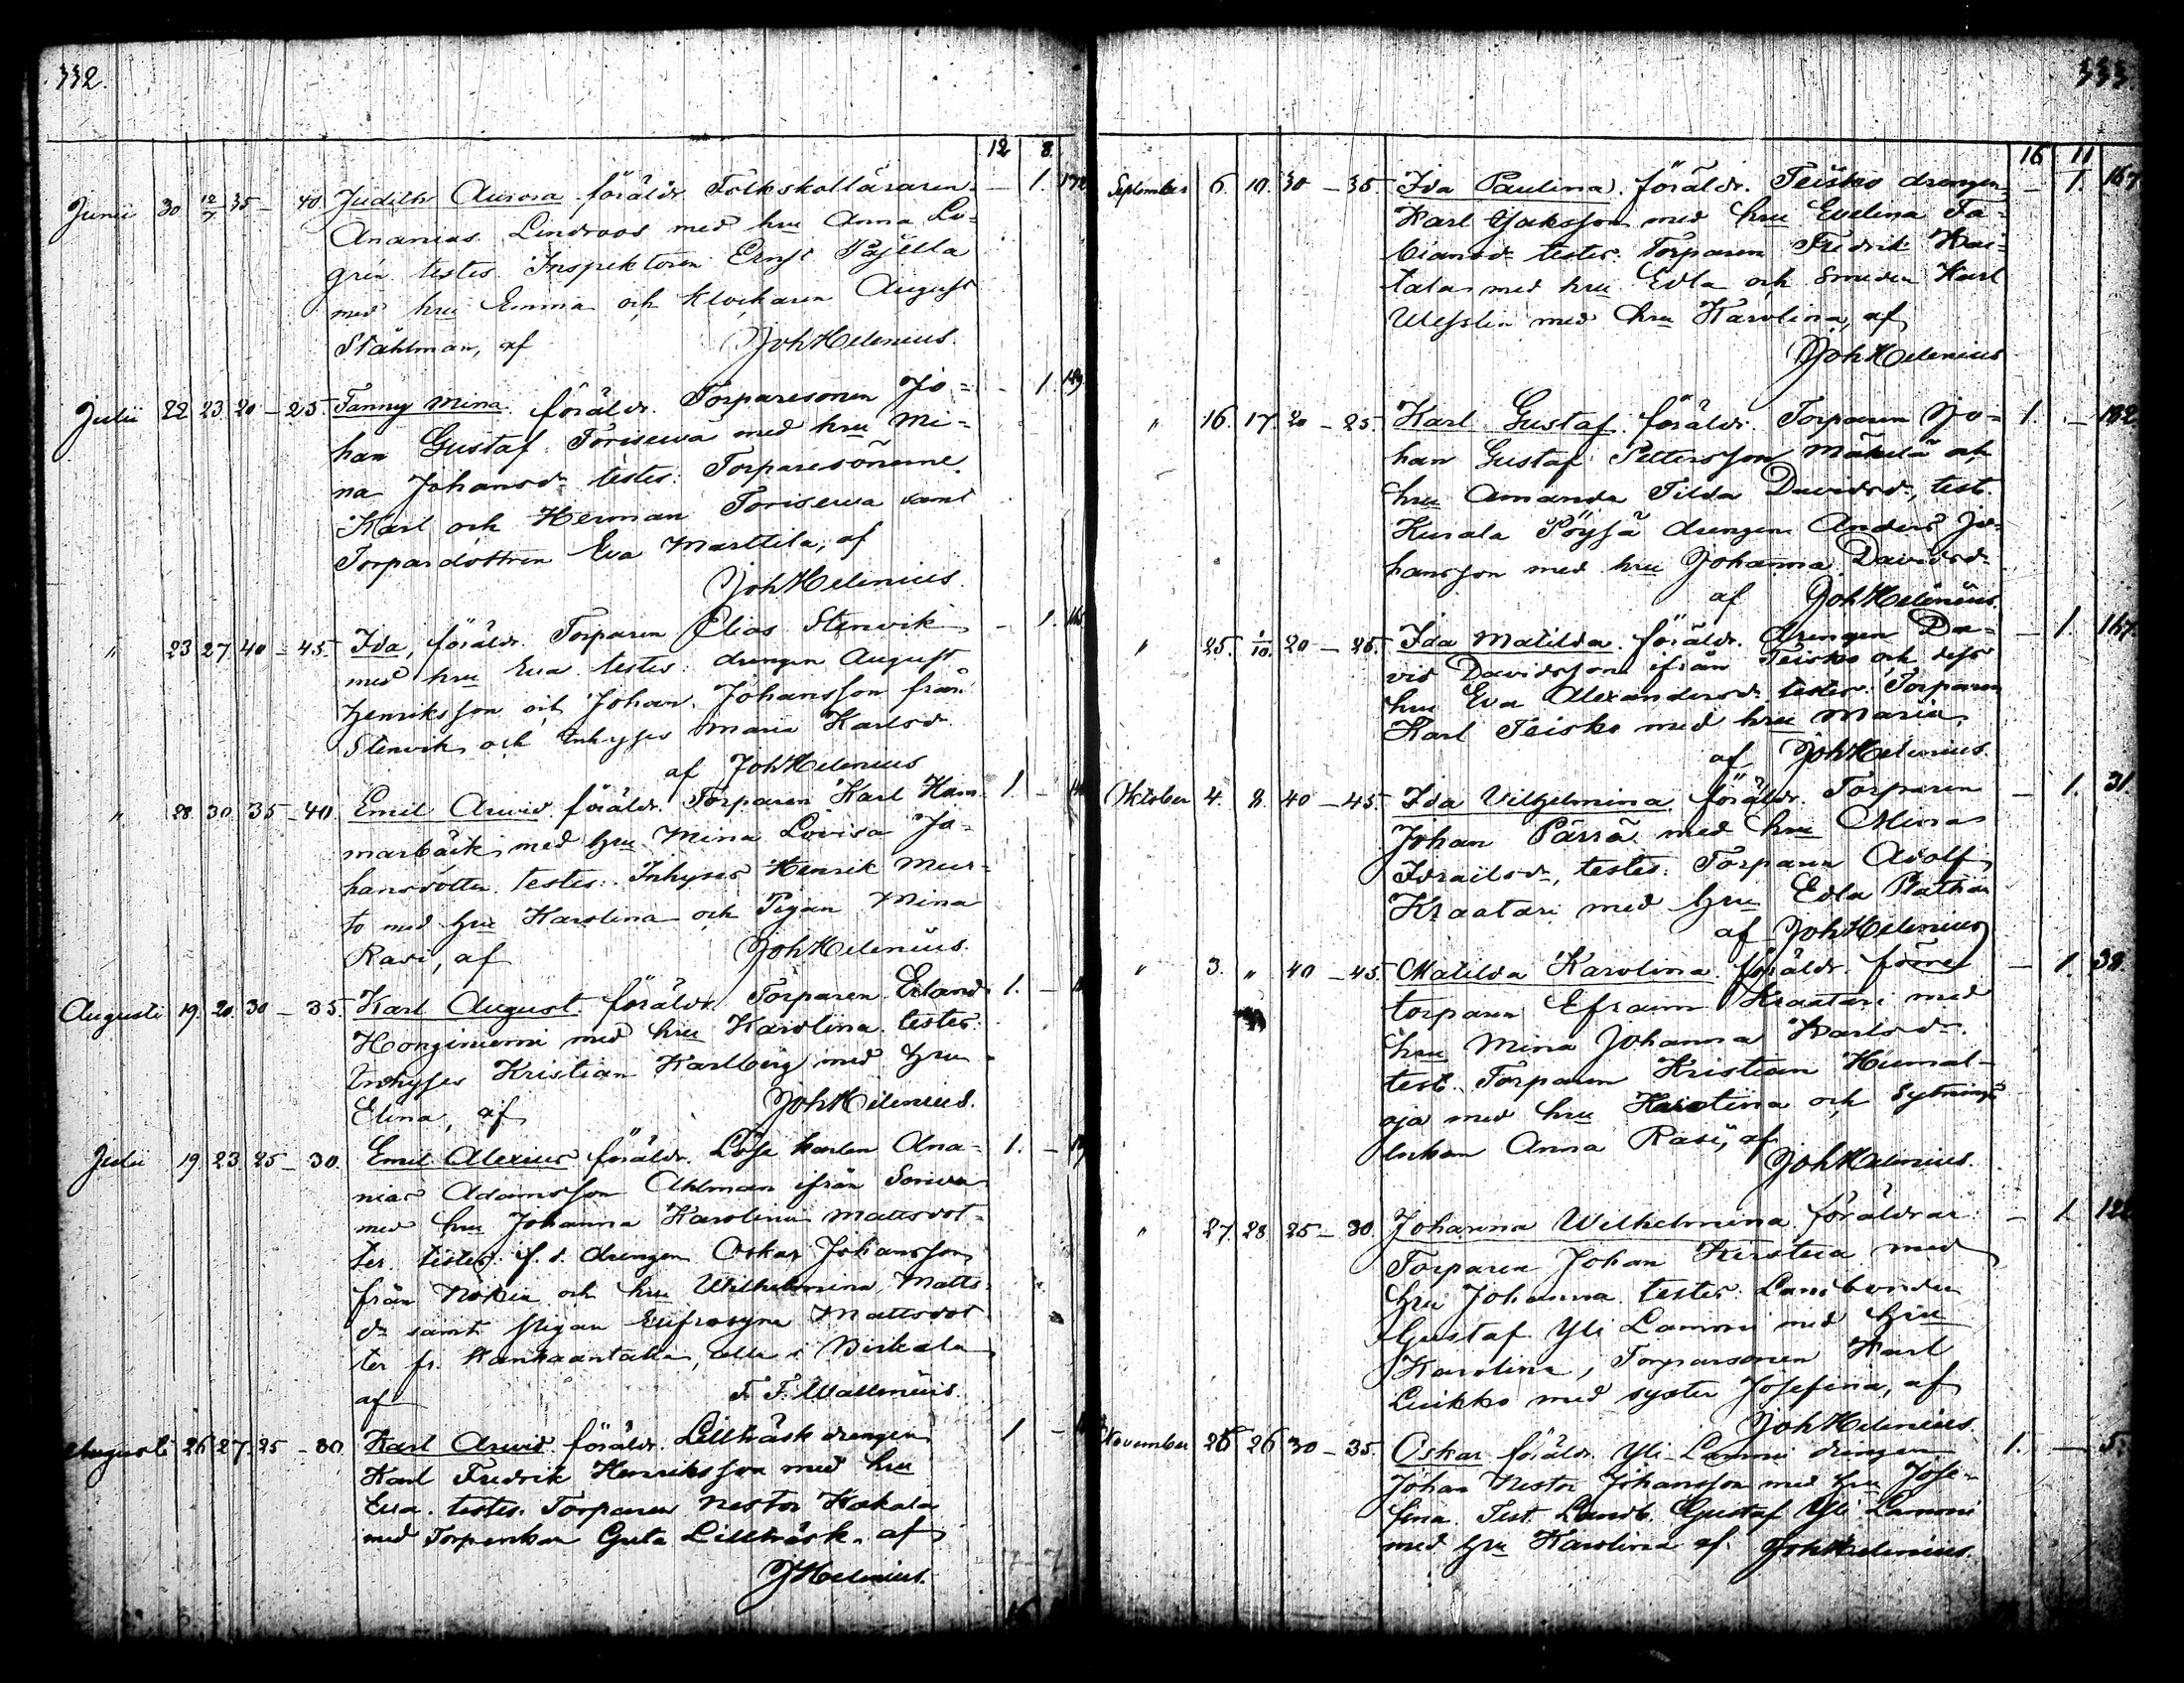 332.
12 8.
Junii 30 12/7 35 - 40 Judith Aurora föräldr. Folkskolläraren - 1. 172
Ananias Lindroos med hru Anna Lo-
grén testes Inspektoren Ernst Pajella
med hru Emma och Klockaren August
Ståhlman, af JohHelenius.
Julii 22 23 20 - 25. Fanny Mina föräldr. Torparesonen Jo- - 1.
han Gustaf Toriseva med hru Mi-
na Johansdr testes: Torparesönerne
Karl och Herman Toriseva samt
Torpardottren Eva Marttila, af
JohHelenius.
" 23 27 40 - 45. Ida, föräldr. Torparen Elias Stenvik - 1.
med hru Eva testes: drengen August
Henriksson och Johan Johansson från
Stenvik och Inhyses Maria Karlsdr
af JohHelenius
" 28 30 35 - 40 Emil Arvid föräldr. Torparen Karl Ham- 1. -
marbäck med hru Mina Lovisa Jo-
hansdotter testes: Inhyses Henrik Mur-
to med hru Karolina och Pigan Mina
Rasi, af JohHelenius.
Augusti 19. 20 30 - 35. Karl August föräldr. Torparen Erland 1. -
Honginiemi med hru Karolina testes:
Inhyses Kristian Karlberg med hru
Elina, af JohHelenius.
Julii 19 23 25 - 30. Emil Alexius föräldr. Löse karlen Ana- 1. -
nias Adamsson Ahlman ifrån
med hru Johanna Karolina Mattsdot-
ter testes: f. d. drengen Oskar Johansson
från Nokia och hru Wilhelmina Matts-
dr samt pigan Eufrosyne Mattsdot
ter fr. Kankaantaka, alla i Birkala
af F. F. Wallenius.
Augusti 26 27. 25 - 30 Karl Arvid föräldr. Lillträsk drengen 1 -
Karl Fredrik Henriksson med hru
Eva. testes. Torparen Nestor Kakala
med Torpenkan Greta Lillträsk. af
JHelenius.
333.
16 11
September 6. 10. 30 - 35. Ida Paulina. föräldr. Teisko drengen - 1. 167
Karl Isaksson med hru Evelina Fa-
biansdr testes: Torparen Fredrik Hai-
tala med hru Edla och Smeden Karl
Wesslin med hru Karolina, af
JohHelenius
" 16. 17. 20 - 25. Karl Gustaf föräldr. Torparen Jo- 1. - 182
han Gustaf Pettersson Mäkelä och
hru Amanda Tilda Davidsdr, test.
Kurala Pöysä drengen Anders Jo-
hansson med hru Johanna Davidsdr
af JohHelenius.
" 25. 1/10. 20 - 25. Ida Matilda föräldr. drengen Da- - 1. 167.
vid Davidsson ifrån Teisko och dess
hru Eva Alexandersdr testes: Torparen
Karl Teisko med hru Maria,
af JohHelenius.
Oktober 4. 8. 40 - 45. Ida Vilhelmina föräldr. Torparen - 1. 31.
Johan Pärrä med hru Mina
Israilsdr, testes: Torparen Adolf
Kraatari med hru Edla
af JohHelenius
" 3. " 40 - 45. Matilda Karolina föräldr. förre - 1. 38.
torparen Efraim Kraatari med
hru Mina Johanna Karlsdr.
test. Torparen Kristian Humal-
oja med hru Karolina och Sytnings
enkan Anna Rasi, af
JohHelenius.
" 27. 28. 25 - 30. Johanna Wilhelmina föräldrar - 1
Torparen Johan Kerstua med
hru Johanna testes: Landbonden
Gustaf Yli Lammi med hru
Karolina, Torparsonen Karl
Luikko med syster Josefina, af
JohHelenius.
November 25 26 30 - 35. Oskar föräldr. Yli-Lammi drengen 1. - 5.
Johan Nestor Johansson med hru Jose-
fina. Test. Landb. Gustaf Yli Lammi
med hru Karolina af. JohHelenius.